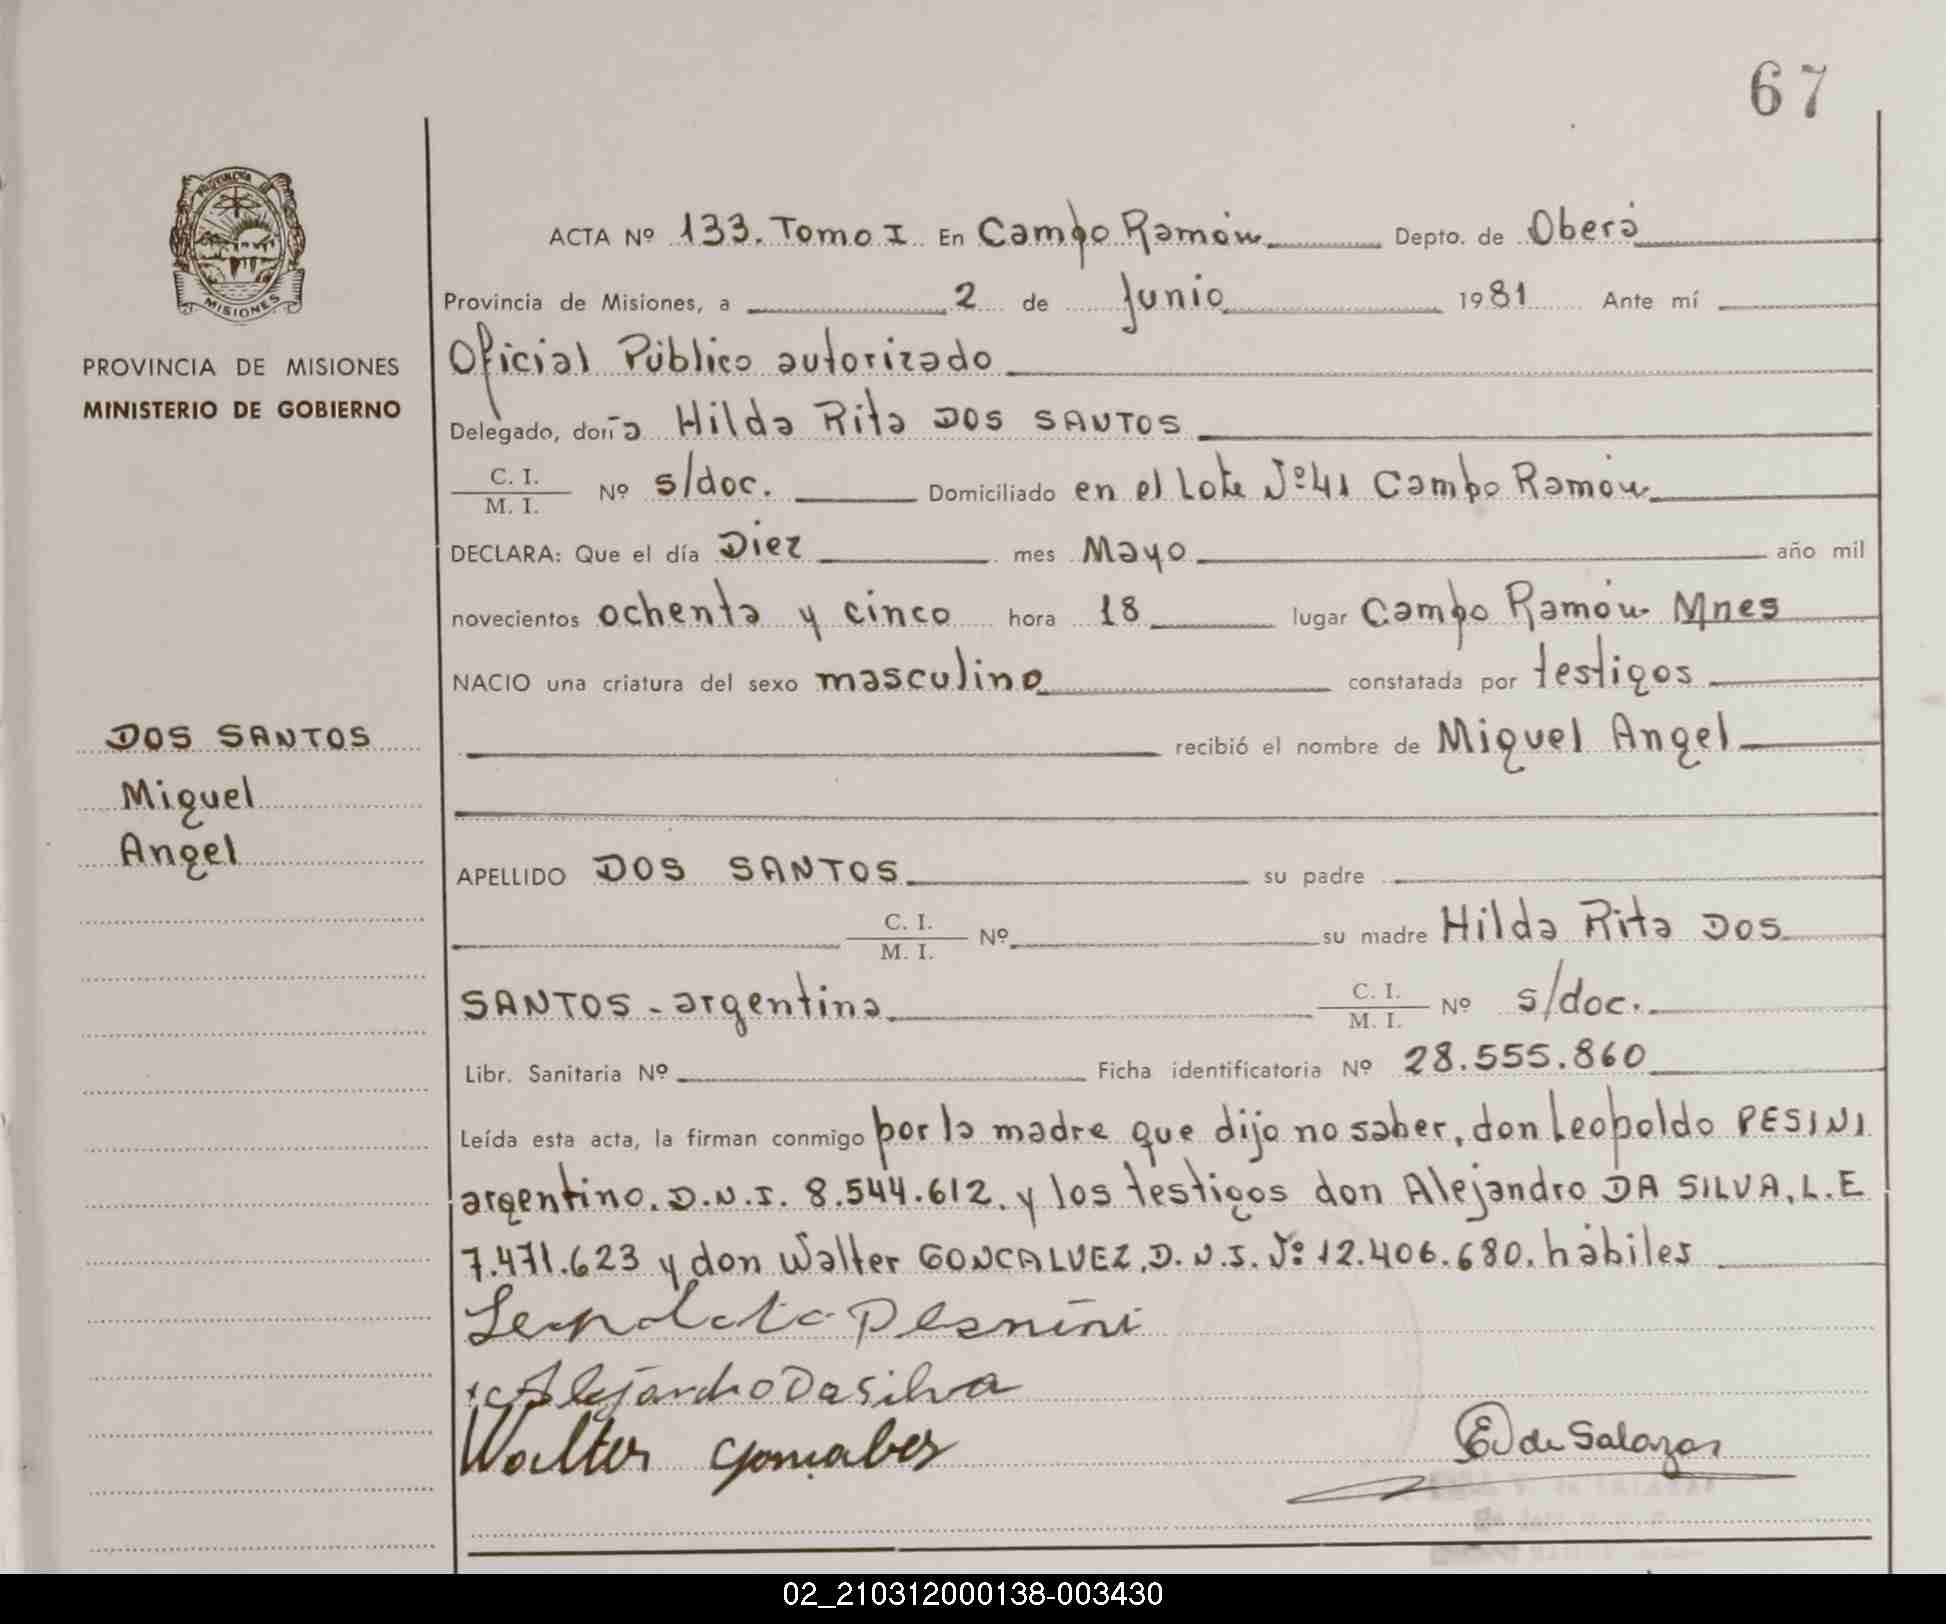 67
ACTA Nº 133. Tomo I En Campo Ramón Depto. de Oberá
Provincia de Misiones, a 2 de Junio 1981 Ante mí
Oficial Público autorizado
PROVINCIA DE MISIONES
MINISTERIO DE GOBIERNO
Delegado, doña Hilda Rita DOS SANTOS
C. I.
M. I. Nº s/doc. Domiciliado en el Lote Nº41 Campo Ramón
DECLARA: Que el día Diez mes Mayo año mil
novecientos ochenta y cinco hora 18 lugar Campo Ramón Mnes
NACIO una criatura del sexo masculino constatada por testigos
recibió el nombre de Miguel Angel
DOS SANTOS
Miguel
Angel
APELLIDO DOS SANTOS su padre
C. I.
M. I. Nº su madre Hilda Rita DOS
SANTOS - argentina C. I.
M. I. Nº s/doc.
Libr. Sanitaria Nº Ficha identificatoria Nº 28.555.860
Leída esta acta, la firman conmigo por la madre que dijo no saber, don Leopoldo PESINI
argentino. D.N.I. 8.544.612. y los testigos don Alejandro DA SILVA, L.E
7.471.623 y don Walter GONCALVEZ, D.N.I. Nº 12.406.680. hábiles
Alejandro Da Silva
Walter
E de Salazar
PROVINCIA
MISIONES
02_210312000138-003430